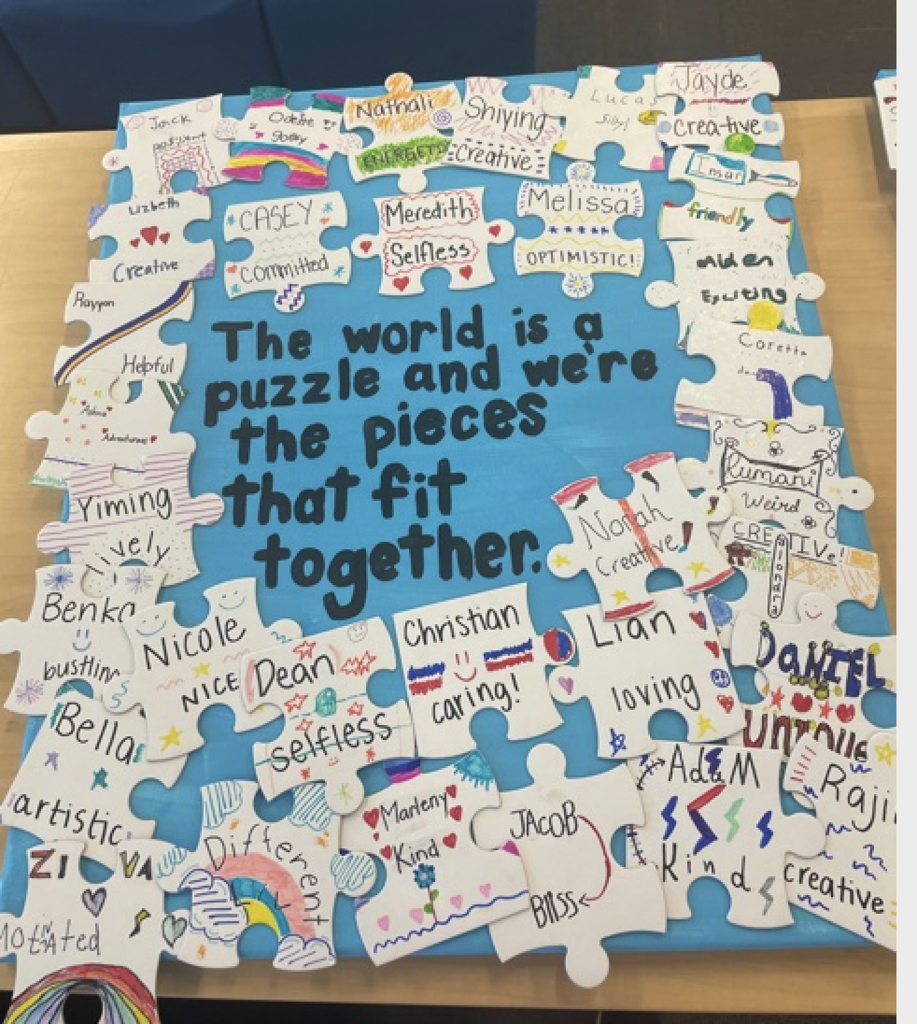 Jack
patient
Odette
goofy
Nathali
ENERGETIC
Shiying
Creative
Lucas
Silly!
Jayde
creative
Lizbeth
Creative
CASEY
committed
Meredith
Selfless
Melissa
OPTIMISTIC!
Insar
friendly
Aiden
Exciting
Rayyan
Helpful
The world is a
puzzle and we're
the pieces
that fit
together.
Coretta
Adventurous
Yiming
lively
Norah
Creative
Kumani
Weird
CREATIVE!
Alondra
Benka
bustling
Nicole
NICE
Dean
selfless
Christian
caring!
Lian
loving
DANIEL
UNIQUE
Bella
artistic
Different
Marleny
Kind
JACOB
BLISS
ADAM
Kind
Raji
creative
ZIVA
MOTIVATED